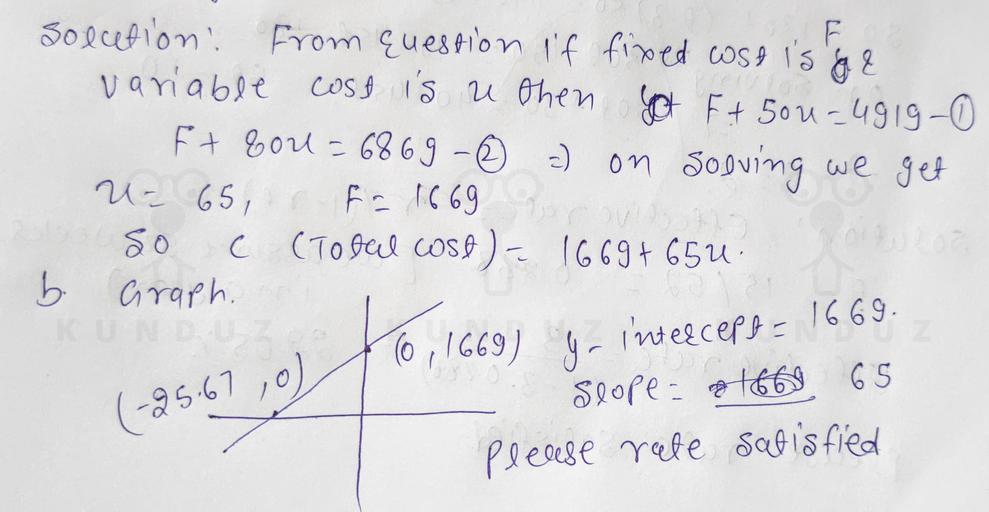 Solution: From question if fixed cost is F &
variable cost is u then F + 50u = 4919 - ①
F + 80u = 6869 - ② => on solving we get
u = 65, F = 1669
so C (Total cost) = 1669 + 65u.
b. Graph.
KUNDUZ KUNDUZ
(0, 1669) y-intercept = 1669.
(-25.67, 0) slope = 65
please rate satisfied